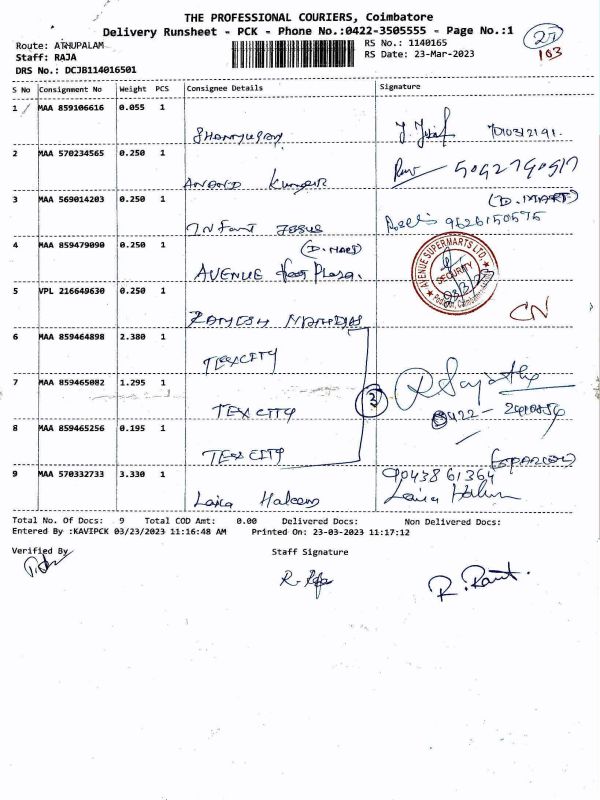 THE PROFESSIONAL COURIERS, Coimbatore
Delivery Runsheet - PCK - Phone No.:0422-3505555 - Page No.:1
Route: ATHUPALAM
RS No.: 1140165
Staff: RAJA
RS Date: 23-Mar-2023
DRS No.: DCJB114016501
S No Consignment No Weight PCS Consignee Details Signature
1 MAA 859106616 0.055 1
2 MAA 570234565 0.250 1
ANAND Kumar
3 MAA 569014203 0.250 1
(D.MART)
Infant Jesus 9626150575
4 MAA 859479090 0.250 1
(D.MART)
AVENUE
AVENUE SUPERMARTS LTD.
SECURITY
5 VPL 216649630 0.250 1
CN
RAMESH
6 MAA 859464898 2.380 1
TEXCITY
7 MAA 859465082 1.295 1
TEXCITY
3
8 MAA 859465256 0.195 1
TEXCITY
9 MAA 570332733 3.330 1
9043861364
Laila
Total No. Of Docs: 9 Total COD Amt: 0.00 Delivered Docs: Non Delivered Docs:
Entered By :KAVIPCK 03/23/2023 11:16:48 AM Printed On: 23-03-2023 11:17:12
Verified By
Staff Signature